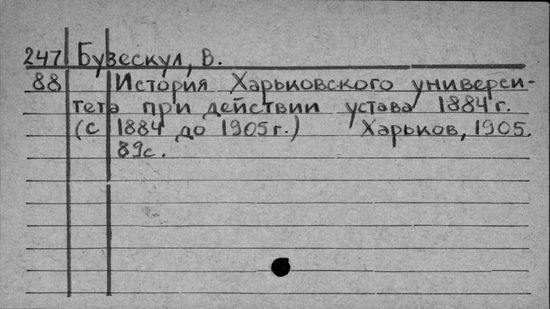 247 Бузескул, В.
88 История Харьковского универси-
тета при действии устава 1884 г.
(с 1884 до 1905 г.) Харьков, 1905.
89 с.